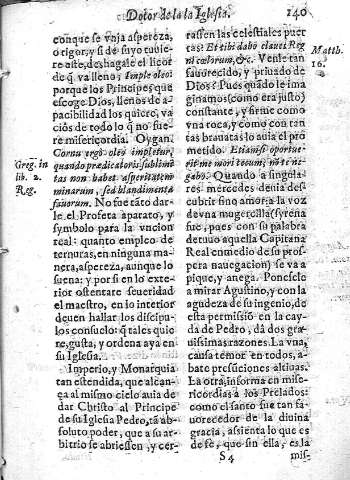 Dotor de la la Iglesia. 140
conque se vnja aspereza,
o rigor, y si de suyo tuuie-
re este, deshagale el licor
de q̃ va lleno; Imple oleo;
porque los Principes que
escoge Dios, llenos de a-
pacibilidad los quiere, va-
cios de todo lo q̃ no fue-
re misericordia. Oygan.
Cornu ergo oleo impletur,
quando prædicatoris sublimi-
tas non habet asperitatem
minarum, sed blandimenta
fauorum. No fue tãto dar-
le el Profeta aparato, y
simbolo para la vncion
real: quanto empleo de
ternuras, en ninguna ma-
nera, aspereza, aunque lo
suena: y por si en lo exte-
rior ostentare seueridad
el maestro, en lo interior
deuen hallar los discipu-
los consuelo: q̃ tales quie-
re, gusta, y ordena aya en
su Iglesia.
Imperio, y Monarquia
tan estendida, que alcan-
ça al mismo cielo auia de
dar Christo al Principe
de su Iglesia Pedro, tã ab-
soluto poder, que a su ar-
bitrio se abriessen, y cer-
Greg. in
lib. 2.
Reg.
rassen las celestiales puer
tas: Et tibi dabo claues Reg
ni cœlorum, &c. Veisle tan
fauorecido, y priuado de
Dios? Pues quãdo le ima
ginamos (como era justo)
constante, y firme como
vna roca, y como con tan
tas brauatas lo auia el pro
metido. Etiamsi oportue-
rit me mori tecum, nõ te ne-
gabo. Quando a singula-
res mercedes deuia des-
cubrir sino amor, a la voz
de vna mugercilla (syrena
fue, pues con su palabra
detuuo aquella Capitana
Real en medio de su pros
pera nauegacion) se va a
pique, y anega. Ponesele
a mirar Agustino, y con la
agudeza de su ingenio, de
esta permissiõ en la cay-
da de Pedro, dà dos gra-
uissimas razones. La vna,
causa temor en todos, a-
bate presunciones altiuas.
La otra, informa en mise-
ricordias a los Prelados:
como el santo fue tan fa-
uorecedor de la diuina
gracia, assienta lo que es
de fè, que sin ella, es la
S 4 mis-
Matth.
16.